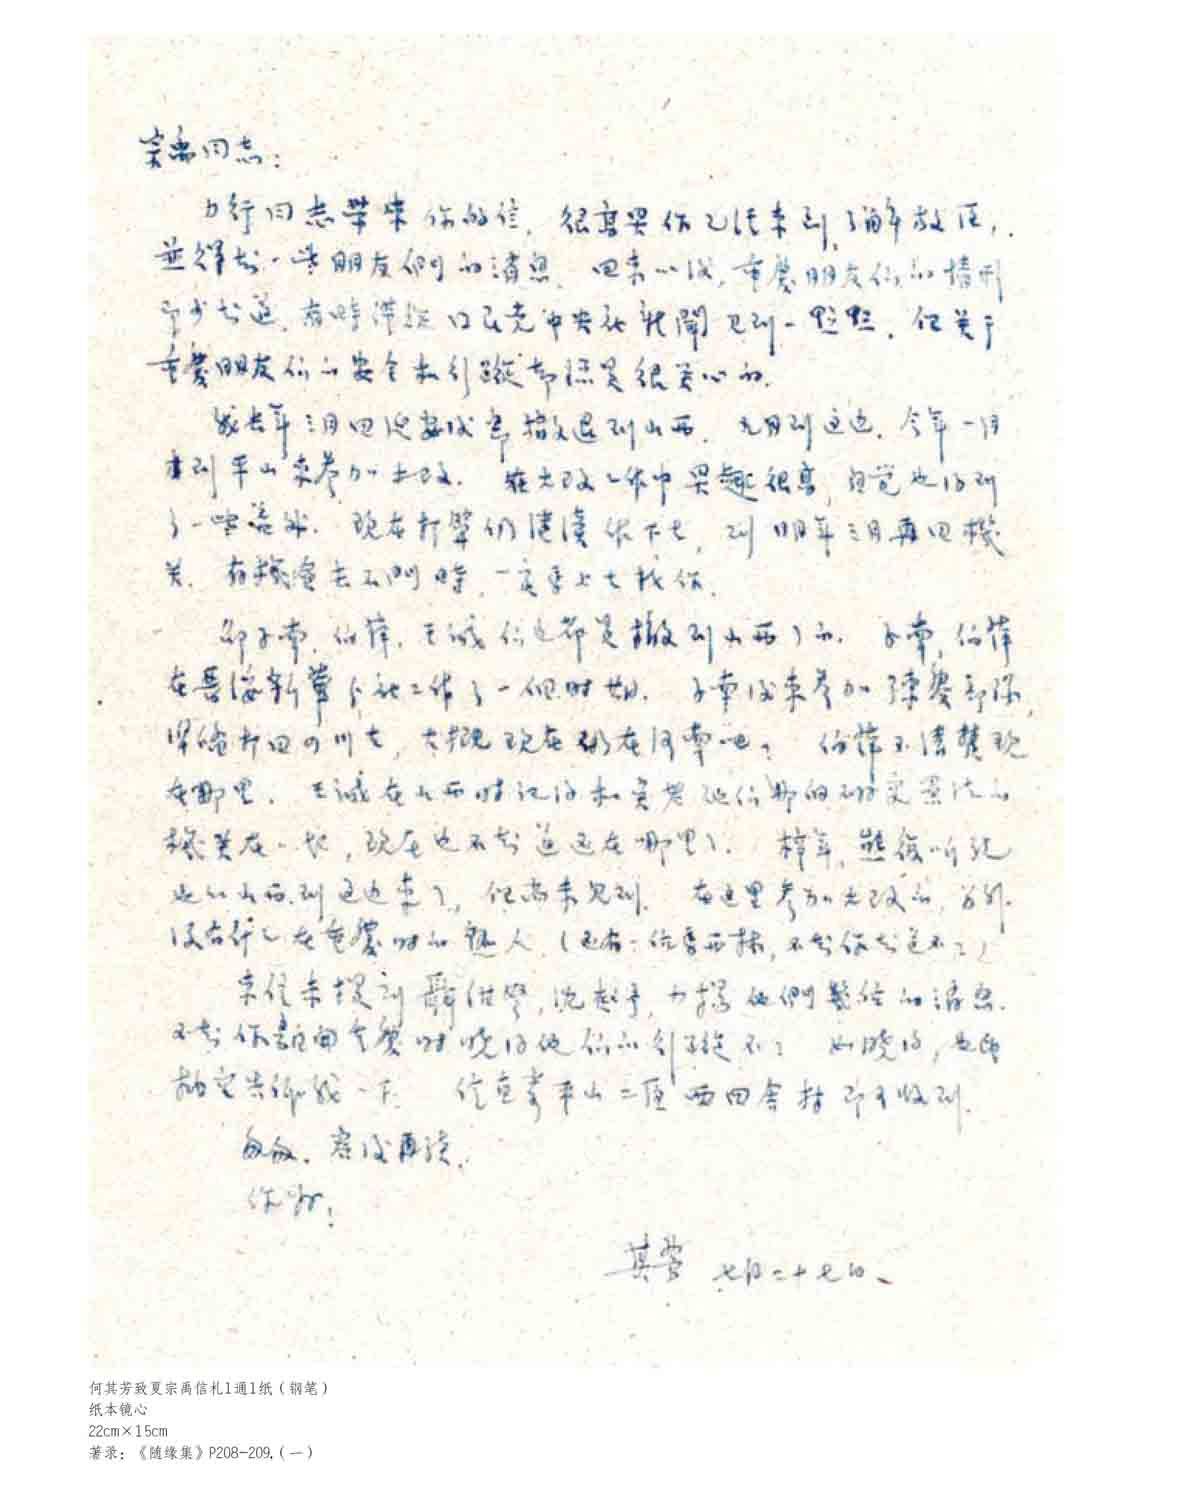 宗禹同志：
力行同志带来你的信，很高兴你已经来到了解放区，
并得知一些朋友们的消息。回来以后，重庆朋友们的情形
即少知道，有时从国民党中央社新闻见到一点点，但关于
重庆朋友们的安全和行踪却还是很关心的。
我去年三月由延安
撤退到山西，九月到这边，今年一月
才到平山来参加土改。在土改工作中兴趣很高，自觉也得到
了一些益处。现在打算仍继续作下去，到明年三月再回机
关。有机会去石门时，一定来找你。
邵子南，伯萍，王诚们也都是撤到山西了的。子南，伯萍
在晋绥新华分社工作了一个时期。子南后来参加了陈赓部队，
准备打回四川去，大概现在仍在河南吧？伯萍不清楚现
在哪里。王诚在山西时记得和
他们那的研究宪法的
机关在一起，现在也不知道还在哪里了。梓年，熊复听说
也从山西到这边来了，但尚未见到。在这里参加土改的，另外
没有什么在重庆时的熟人。（还有一位
，不知你知道不？）
来信未提到聂绀弩，沈起予，力扬他们
的消息。
不知你离开重庆时晓得他们的行踪不？如晓得，也望
抽空告诉我一下。信直寄平山二区西回舍村即可收到。
匆匆，容后再谈。
你好！
其芳 七月二十七日、
何其芳致夏宗禹信札1通1纸（钢笔）
纸本镜心
22cm×15cm
著录：《随缘集》P208-209.（一）